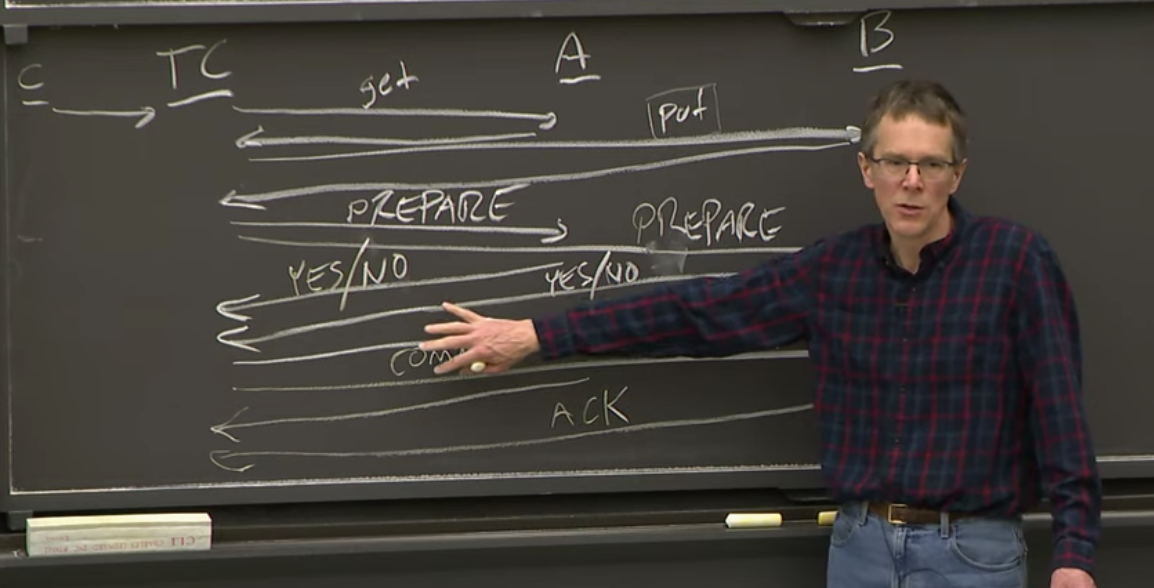 C TC A B
get
put
PREPARE
PREPARE
YES/NO YES/NO
ACK